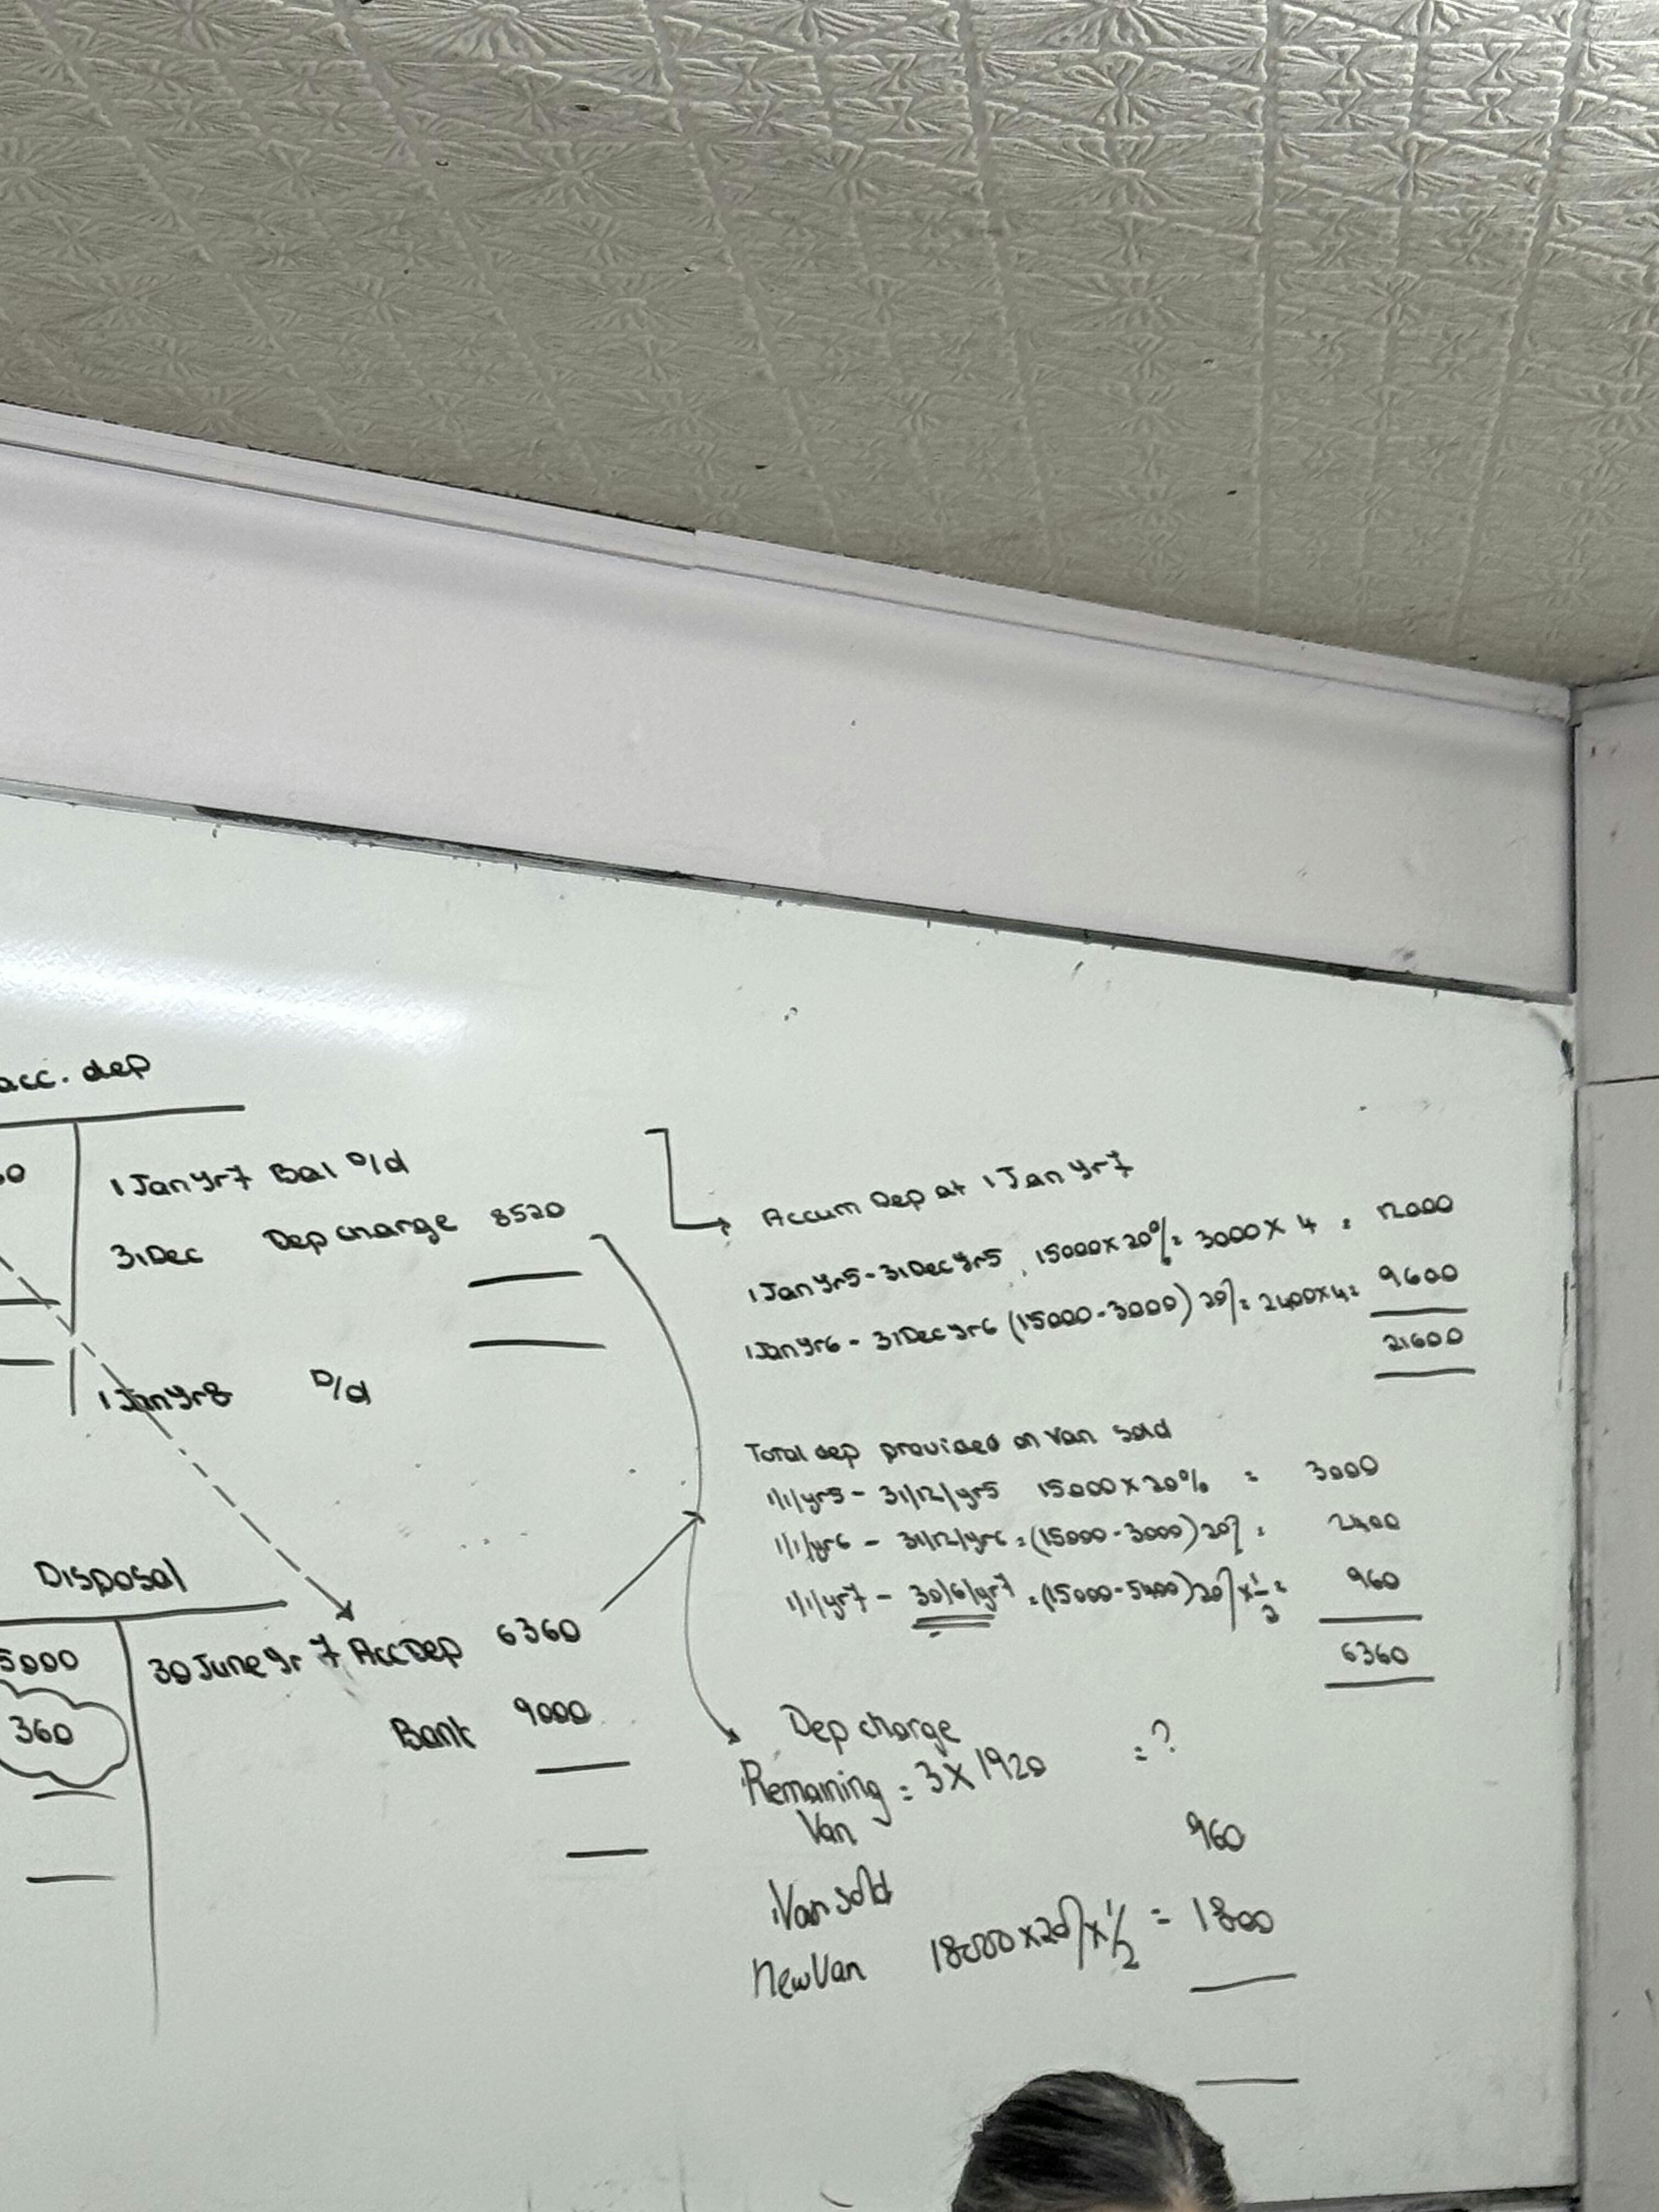 acc. dep
1 Jan yr7 Bal b/d
31 Dec Dep charge 8520
1 Jan yr8 b/d
Disposal
5000 30 June yr 7 Acc Dep 6360
360 Bank 9000
Accum Dep at 1 Jan yr7
1 Jan yr5 - 31 Dec yr5, 15000 x 20% = 3000 x 4 = 12000
1 Jan yr6 - 31 Dec yr6 (15000 - 3000) 20% = 2400 x 4 = 9600
21600
Total dep provided on van sold
1/1/yr5 - 31/12/yr5 15000 x 20% = 3000
1/1/yr6 - 31/12/yr6 = (15000 - 3000) 20% = 2400
1/1/yr7 - 30/6/yr7 = (15000 - 5400) 20% x 1/2 = 960
6360
Dep charge
Remaining = 3 X 1920 = ?
Van
Van sold 960
New Van 18000 x 20% x 1/2 = 1800